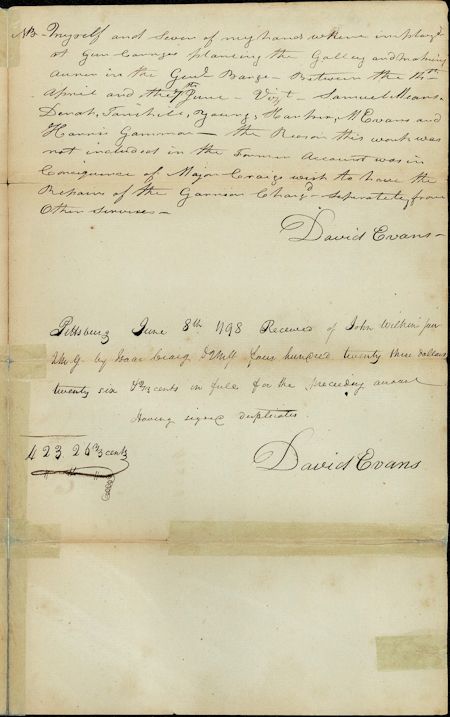 NB Myself and Seven of my hands where imployd
at Gun Carriages planking the Galley and making
in the Genl Barge – Between the
April and the 7th June – Vizt – Samuel Means
Young, M Evans and
Harris Gammon – the Reason this work was
not included in the Former Account was in
Consequence of Major Craigs wish to have the
Repairs of the Garrison Chargd Seperately from
Other Services –
David Evans –
Pittsburg June 8th 1798 Received of John Wilkins junr
QMG by Isaac Craig DQMG four hundred twenty three dollars
twenty six cents in full for the preceeding account
Having signed duplicates
423 26 cents
David Evans